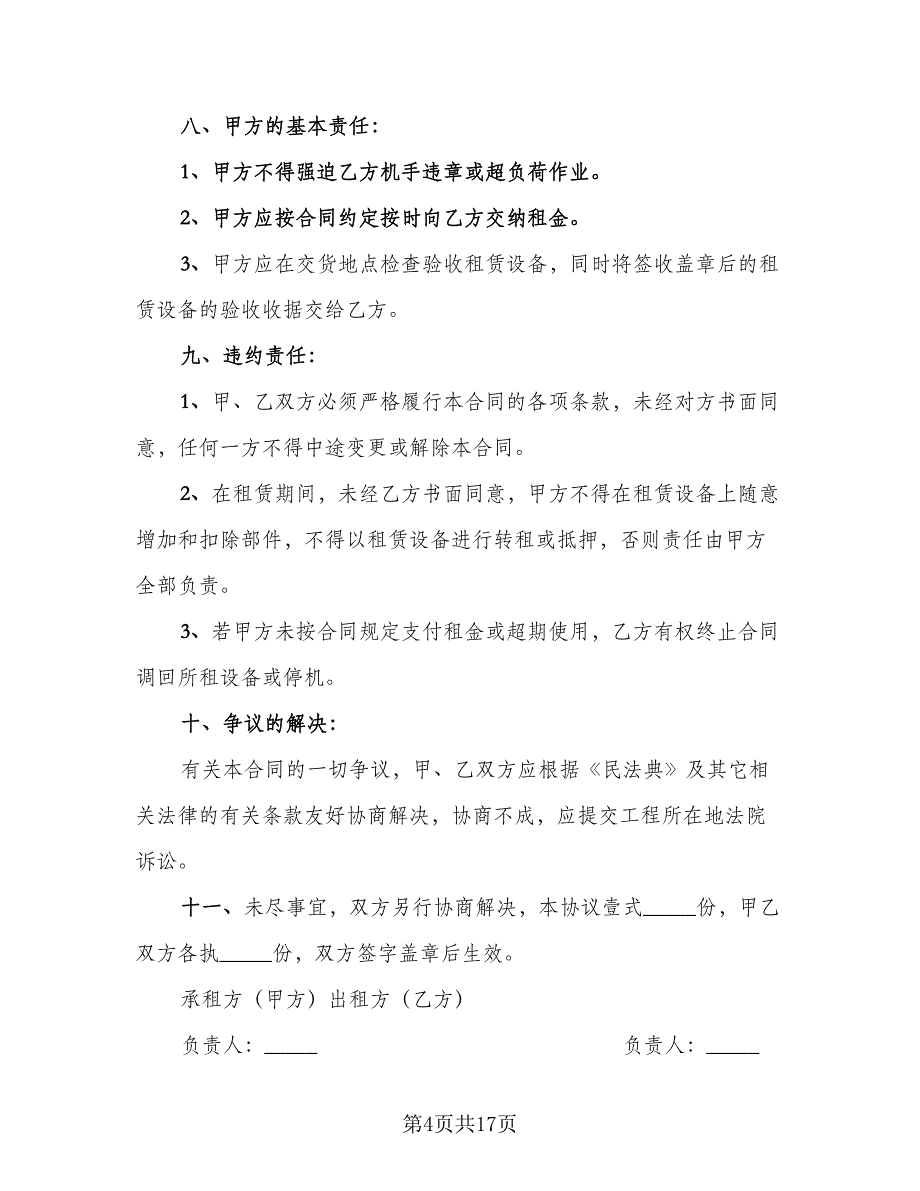 八、甲方的基本责任：
1、甲方不得强迫乙方机手违章或超负荷作业。
2、甲方应按合同约定按时向乙方交纳租金。
3、甲方应在交货地点检查验收租赁设备，同时将签收盖章后的租
赁设备的验收收据交给乙方。
九、违约责任：
1、甲、乙双方必须严格履行本合同的各项条款，未经对方书面同
意，任何一方不得中途变更或解除本合同。
2、在租赁期间，未经乙方书面同意，甲方不得在租赁设备上随意
增加和扣除部件，不得以租赁设备进行转租或抵押，否则责任由甲方
全部负责。
3、若甲方未按合同规定支付租金或超期使用，乙方有权终止合同
调回所租设备或停机。
十、争议的解决：
有关本合同的一切争议，甲、乙双方应根据《民法典》及其它相
关法律的有关条款友好协商解决，协商不成，应提交工程所在地法院
诉讼。
十一、未尽事宜，双方另行协商解决，本协议壹式_____份，甲乙
双方各执_____份，双方签字盖章后生效。
承租方（甲方）出租方（乙方）
负责人：_____ 负责人：_____
第4页共17页